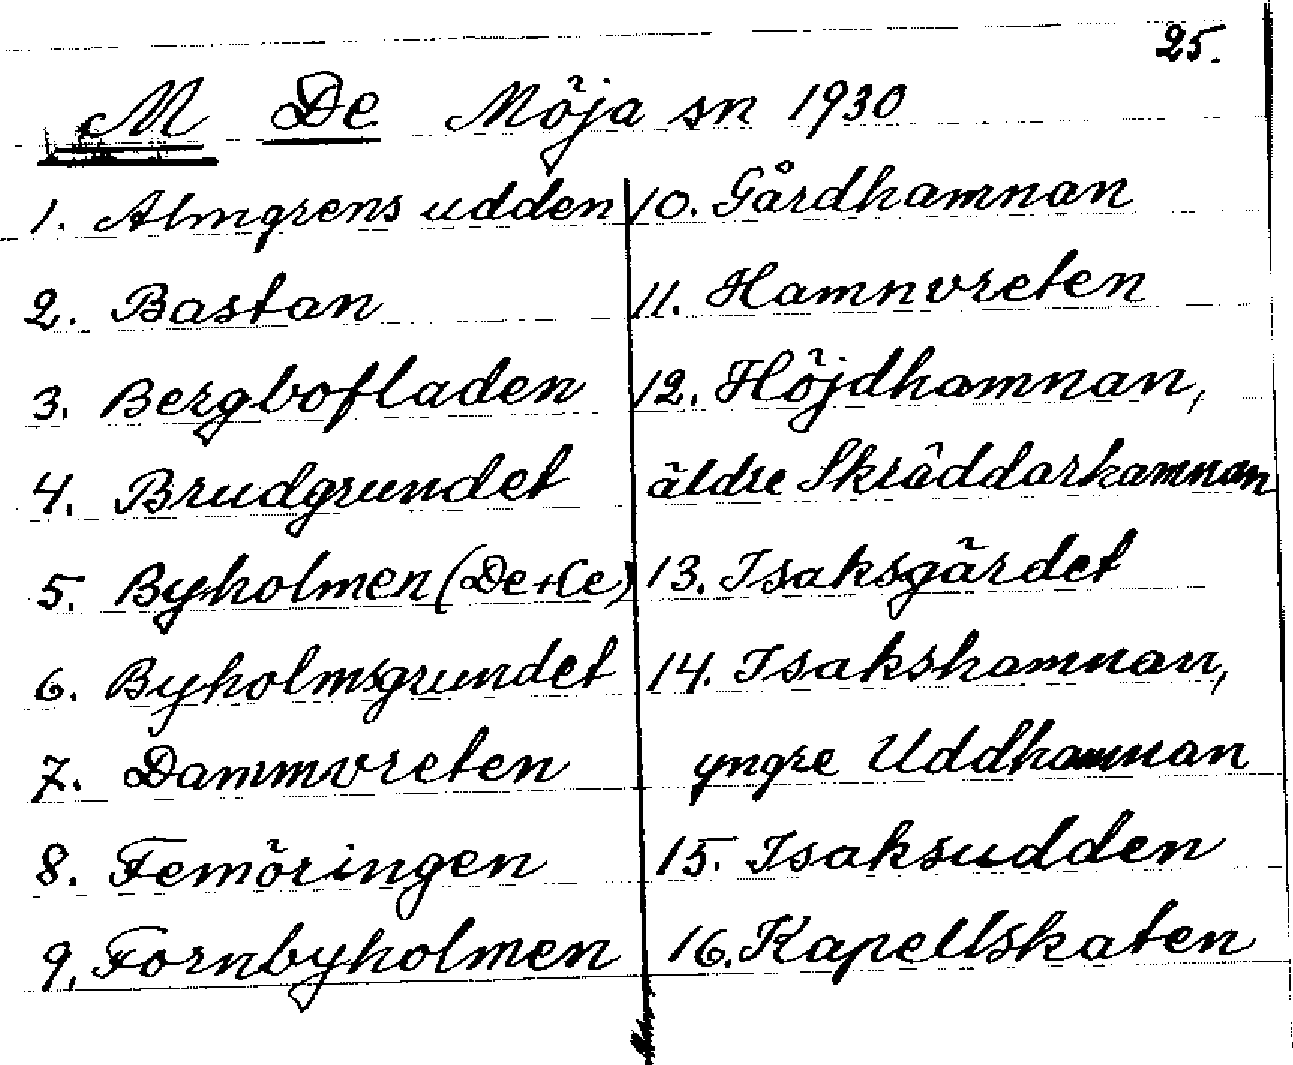 25.
M De Möja sn 1930
1. Almgrens udden
2. Bastan
3. Bergbofladen
4. Brudgrundet
5. Byholmen (De+Ce)
6. Byholmsgrundet
7. Dammvreten
8. Femöringen
9. Fornbyholmen
10. Gårdhamnan
11. Hamnvreten
12. Höjdhamnan,
äldre Skräddarhamnan
13. Isaksgärdet
14. Isakshamnan,
yngre Uddhamnan
15. Isaksudden
16. Kapellskaten